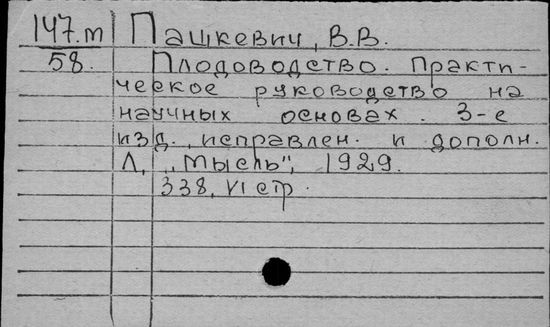 147.m Пашкевич, В.В.
58. Плодоводство. Практи-
ческое руководство на
научных основах. 3-е
изд., исправлен. и дополн.
Л, „Мысль", 1929.
338, VI стр.